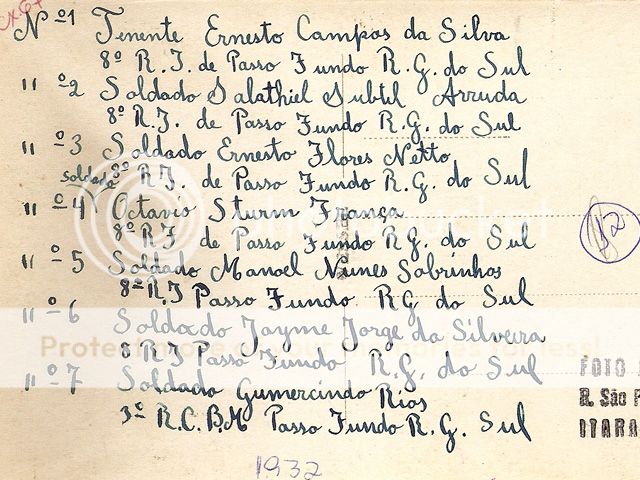 Nº1 Tenente Ernesto Campos da Silva
8º R.I. de Passo Fundo R.G. do Sul
" º2 Soldado Salathiel Subtil Arruda
8º R.I. de Passo Fundo R.G. do Sul
" º3 Soldado Ernesto Flores Netto
8º R.I. de Passo Fundo R.G. do Sul
soldado
" º4 Octavio Sturm França
8º R.I. de Passo Fundo R.G. do Sul
" º5 Soldado Manoel Nunes Sobrinhos
8º R.I Passo Fundo R.G do Sul
" º6 Soldado Jayme Jorge da Silveira
8 R I Passo Fundo R.G. do Sul
" º7 Soldado Gumercindo Rios
3º R.C.B.M Passo Fundo R.G. Sul
1932
FOTO
R. São
ITARA